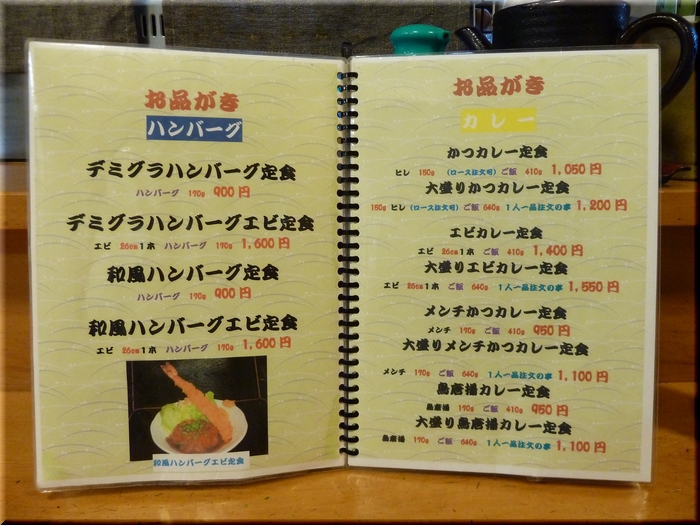 お品がき
ハンバーグ
デミグラハンバーグ定食
ハンバーグ 190g 900円
デミグラハンバーグエビ定食
エビ 26cm1本 ハンバーグ 190g 1,600円
和風ハンバーグ定食
ハンバーグ 190g 900円
和風ハンバーグエビ定食
エビ 26cm1本 ハンバーグ 190g 1,600円
和風ハンバーグエビ定食
お品がき
カレー
かつカレー定食
ヒレ 150g (ロース注文可) ご飯 410g 1,050円
大盛りかつカレー定食
150g ヒレ (ロース注文可) ご飯 640g 1人一品注文の事 1,200円
エビカレー定食
エビ 26cm1本 ご飯 410g 1,400円
大盛りエビカレー定食
エビ 26cm1本 ご飯 640g 1人一品注文の事 1,550円
メンチかつカレー定食
メンチ 190g ご飯 410g 950円
大盛りメンチかつカレー定食
メンチ 190g ご飯 640g 1人一品注文の事 1,100円
鳥唐揚カレー定食
鳥唐揚 190g ご飯 410g 950円
大盛り鳥唐揚カレー定食
鳥唐揚 190g ご飯 640g 1人一品注文の事 1,100円